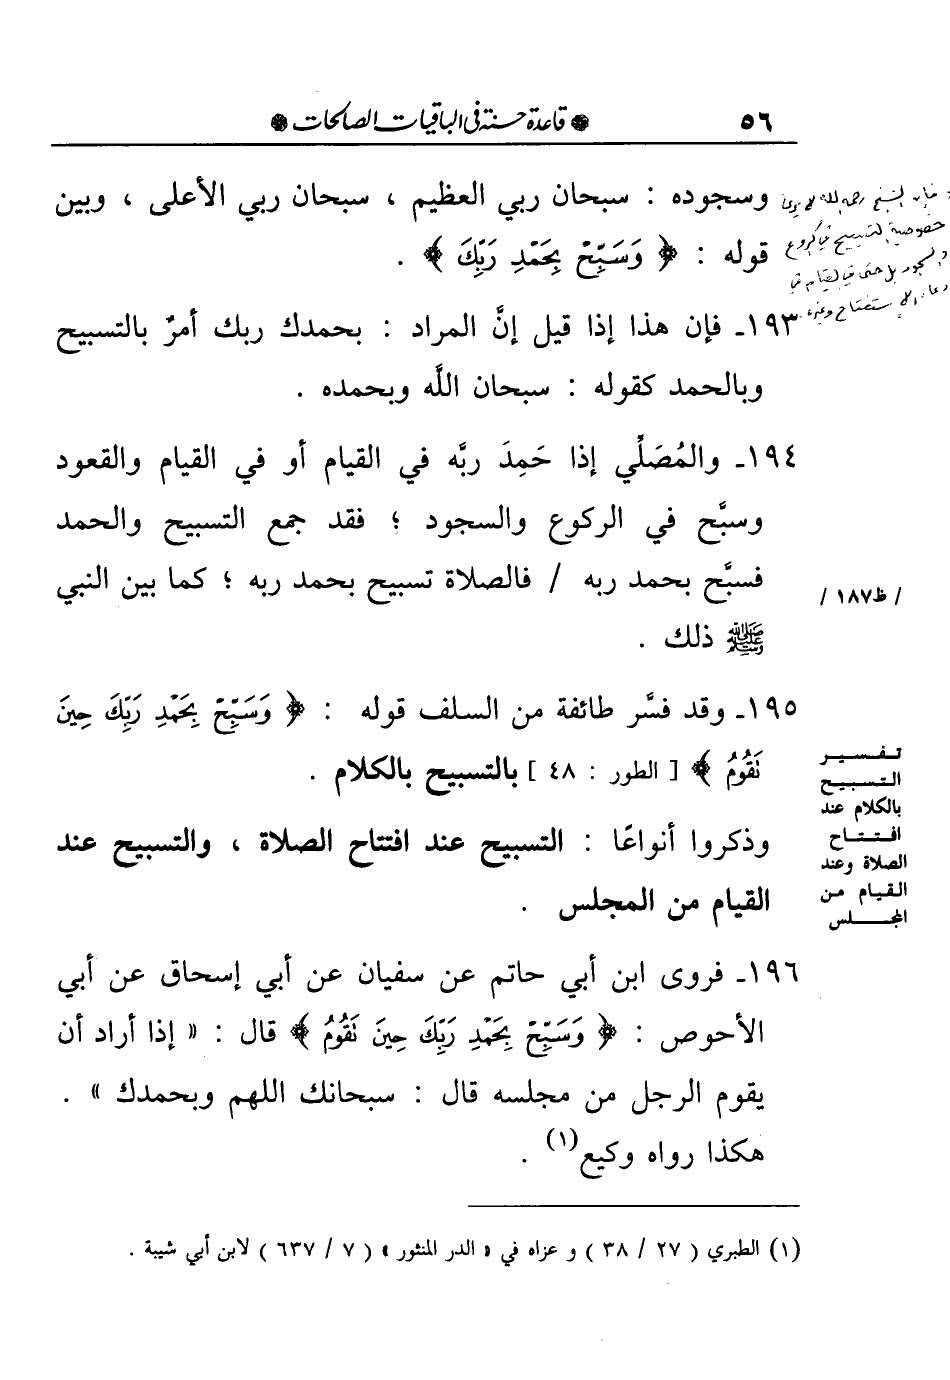 ٥٦
❁ قاعدة حسنة في الباقيات الصالحات ❁
وسجوده : سبحان ربي العظيم ، سبحان ربي الأعلى ، وبين
قوله : ﴿ وَسَبِّحْ بِحَمْدِ رَبِّكَ ﴾ .
الشيخ رحمه الله لا
خصوصية التسبيح في الركوع
والسجود بل حتى في القيام في
دعاء الاستفتاح وغيره .
١٩٣ـ فإن هذا إذا قيل إنَّ المراد : بحمدك ربك أمرٌ بالتسبيح
وبالحمد كقوله : سبحان اللَّه وبحمده .
١٩٤ـ والمُصَلِّي إذا حَمِدَ ربَّه في القيام أو في القيام والقعود
وسبَّح في الركوع والسجود ؛ فقد جمع التسبيح والحمد
فسبَّح بحمد ربه / فالصلاة تسبيح بحمد ربه ؛ كما بين النبي
ﷺ ذلك .
/ ظ١٨٧ /
١٩٥ـ وقد فسَّر طائفة من السلف قوله : ﴿ وَسَبِّحْ بِحَمْدِ رَبِّكَ حِينَ
نَقُومُ ﴾ [ الطور : ٤٨ ] بالتسبيح بالكلام .
وذكروا أنواعًا : التسبيح عند افتتاح الصلاة ، والتسبيح عند
القيام من المجلس .
تـفـسـيـر
التـسـبيـح
بالكلام عند
افـتـتـاح
الصلاة وعند
القـيـام مـن
المجـــلس
١٩٦ـ فروى ابن أبي حاتم عن سفيان عن أبي إسحاق عن أبي
الأحوص : ﴿ وَسَبِّحْ بِحَمْدِ رَبِّكَ حِينَ نَقُومُ ﴾ قال : « إذا أراد أن
يقوم الرجل من مجلسه قال : سبحانك اللهم وبحمدك » .
هكذا رواه وكيع(١) .
(١) الطبري ( ٢٧ / ٣٨ ) و عزاه في « الدر المنثور » ( ٧ / ٦٣٧ ) لابن أبي شيبة .